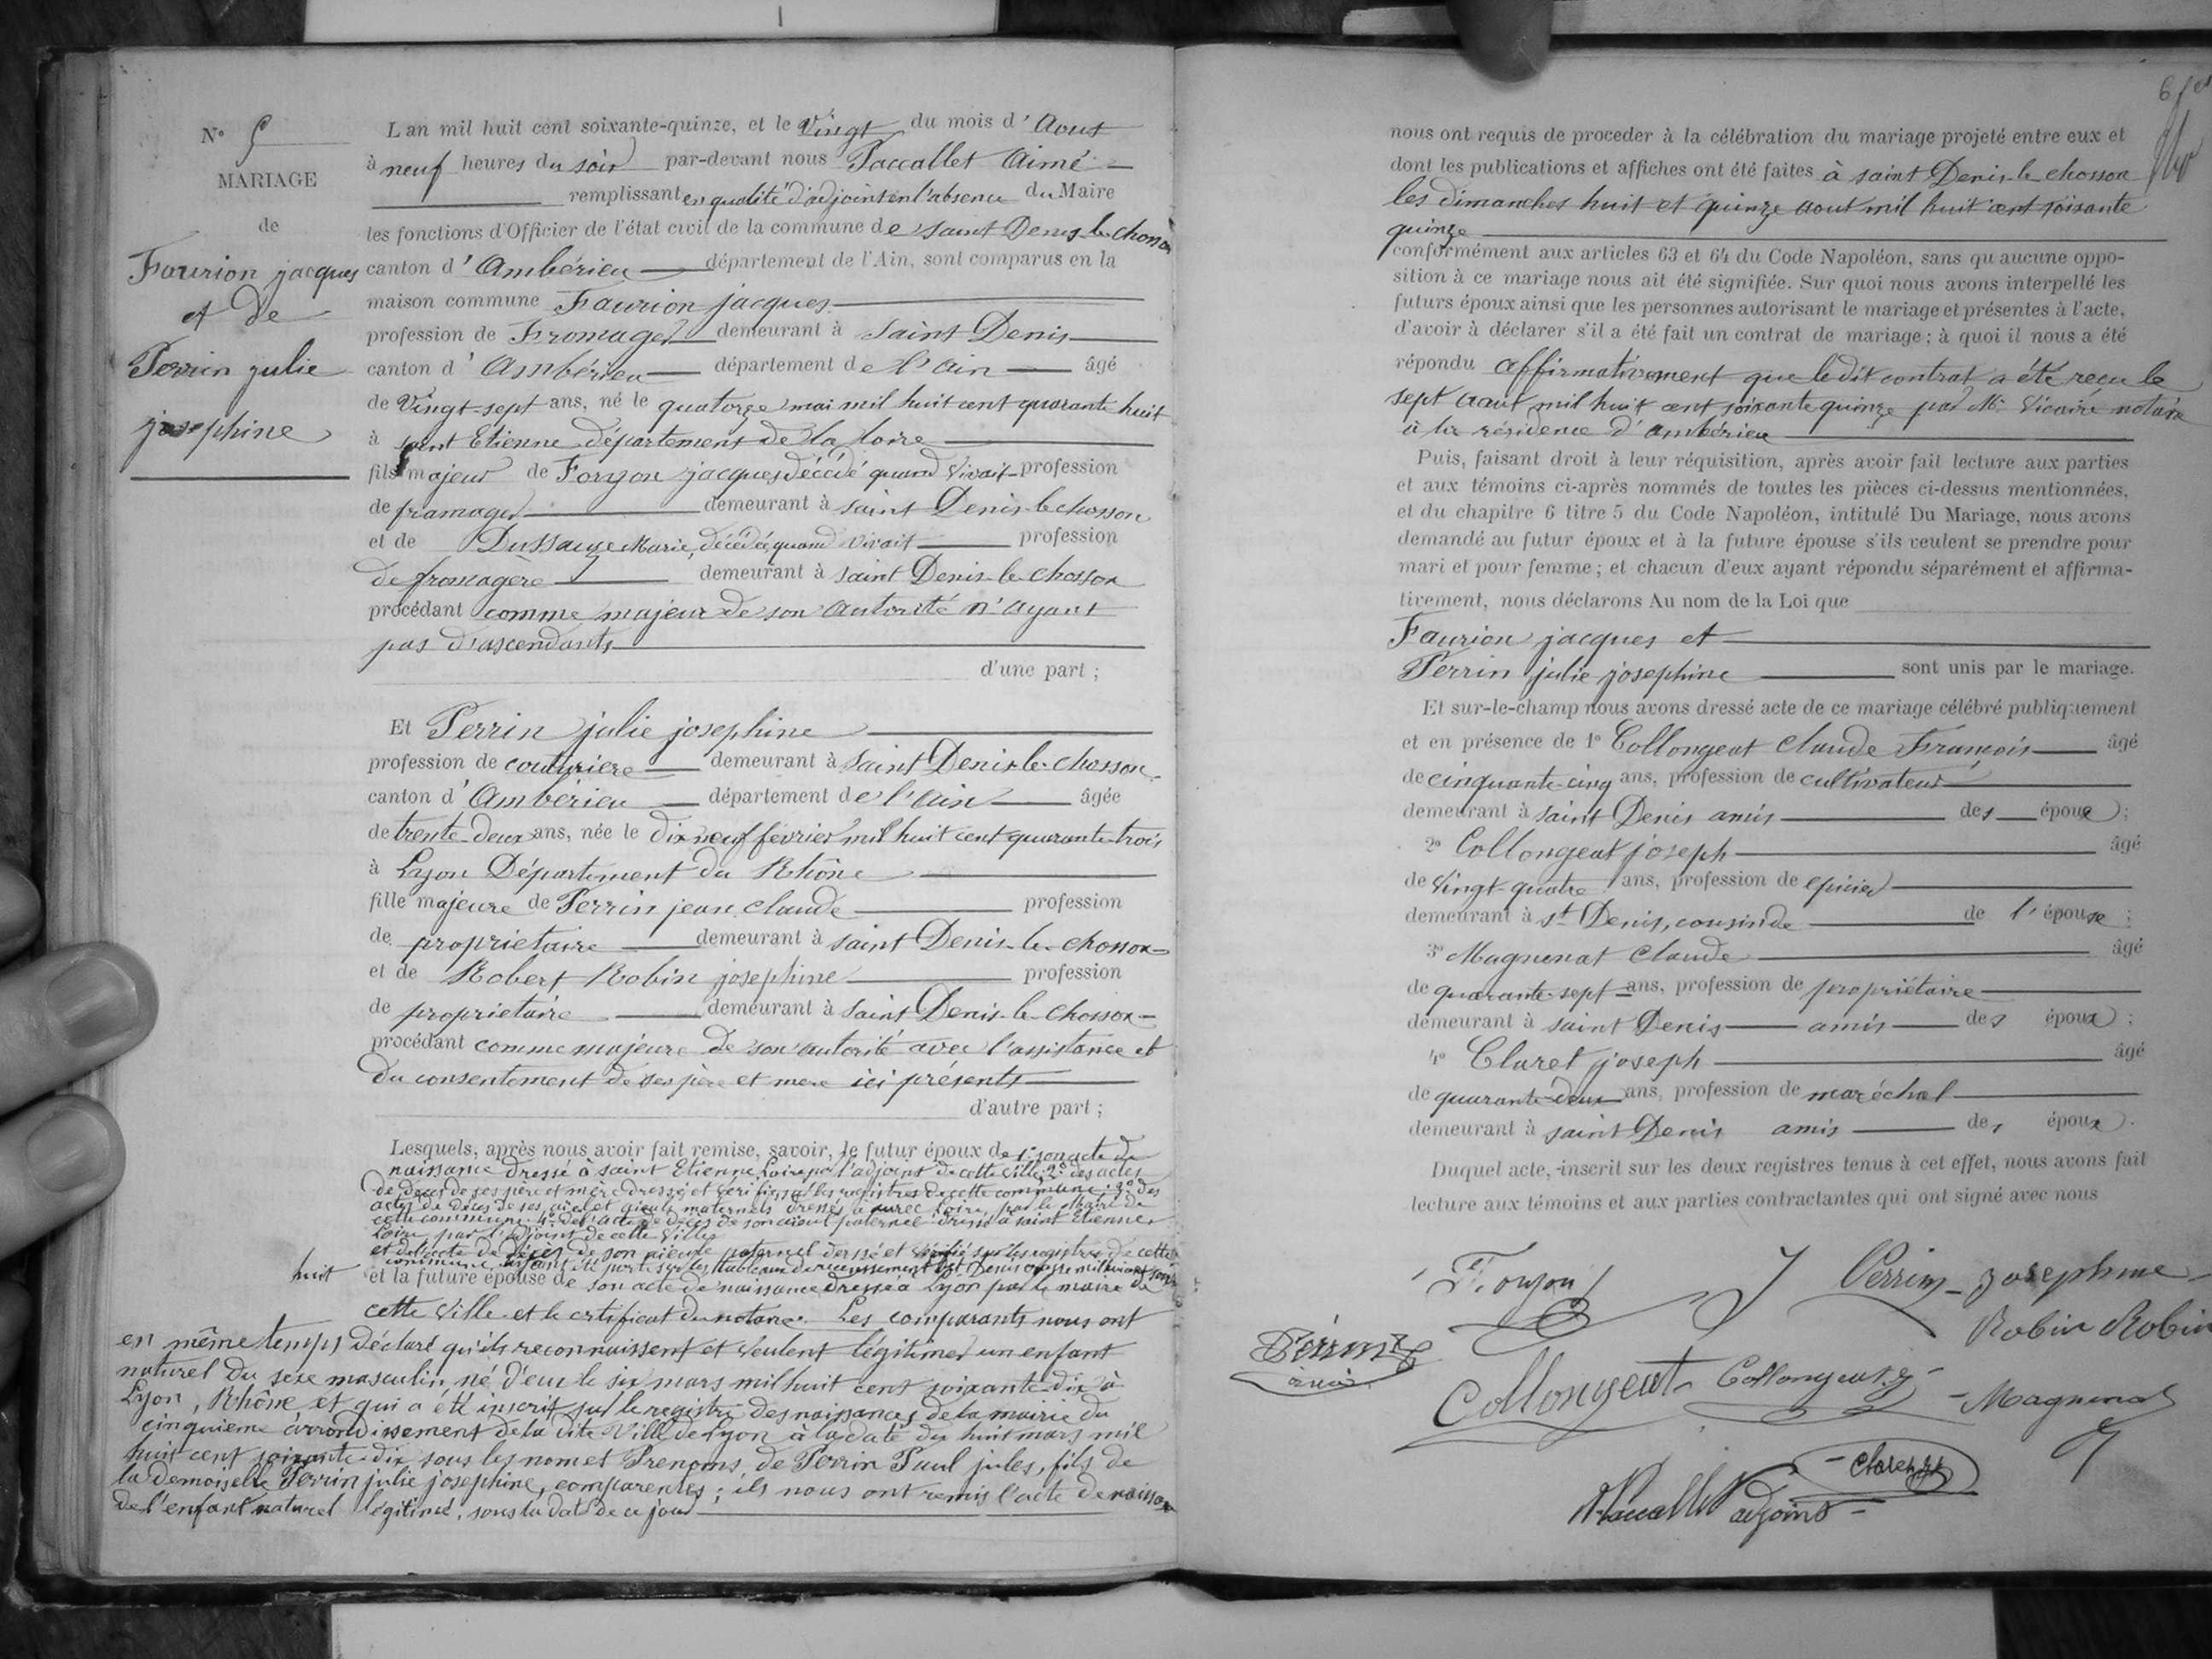 N° 5
MARIAGE
de
Faurion jacques
et de
Perrin julie
josephine
L'an mil huit cent soixante-quinze, et le Vingt du mois d'Aout
à neuf heures du soir par-devant nous Paccallet Aimé
remplissant en qualité d'adjoint en l'absence du Maire
les fonctions d'Officier de l'état civil de la commune de saint Denis-le-chosson
canton d'Ambérieu département de l'Ain, sont comparus en la
maison commune Faurion jacques
profession de Fromager demeurant à Saint Denis
canton d'Ambérieu département de l'ain âgé
de Vingt-sept ans, né le quatorze mai mil huit cent quarante huit
à saint Etienne département de la loire
fils majeur de Fonyon jacques décédé quand vivait profession
de framager demeurant à saint Denis-le chosson
et de Dussauge Marie, décédée quand vivait profession
de fromagère demeurant à saint Denis-le-chosson
procédant comme majeur de son autorité n'ayant
pas d'ascendants
d'une part ;
Et Perrin julie josephine
profession de couturiere demeurant à Saint Denis-le-chosson
canton d'Ambérieu département de l'ain âgée
de trente-deux ans, née le dix neuf fevrier mil huit cent quarante-trois
à Lyon Département du Rhône
fille majeure de Perrin jean claude profession
de proprietaire demeurant à saint Denis-le-chosson
et de Robert Robin josephine profession
de proprietaire demeurant à saint Denis-le-chosson
procédant comme majeure de son autorité avec l'assistance et
du consentement de ses père et mere ici présents
d'autre part ;
Lesquels, après nous avoir fait remise, savoir, le futur époux de 1° son acte de
naissance dressé à saint Etienne Loire par l'adjoint de cette ville 2° des actes
de décès de ses père et mère dressé et vérifié sur les registres de cette commune 3° des
actes de décès de ses aïeul et aïeule maternels dressés à aurec Loire, par le Maire de
cette commune. 4° de l'acte de décès de son aïeul paternel dressé à saint Etienne
Loire par l'adjoint de cette Ville
et de l'acte de décès de son aïeule paternel dressé et vérifié sur les registres de cette
commune
huit et la future épouse de son acte de naissance dressé à Lyon par le maire de
cette Ville et le certificat du notaire. Les comparants nous ont
en même temps déclaré qu'ils reconnaissent et veulent légitimer un enfant
naturel du sexe masculin, né d'eux le six mars mil huit cent soixante-dix à
Lyon, Rhône et qui a été inscrit sur le registre des naissances de la mairie du
cinquième arrondissement de la dite Ville de Lyon à la date du huit mars mil
huit cent soixante-dix sous les nom et Prenoms de Perrin Paul jules, fils de
la demoiselle Perrin julie josephine, comparentes ; ils nous ont remis l'acte de naissan
de l'enfant naturel légitimé, sous la date de ce jour
nous ont requis de proceder à la célébration du mariage projeté entre eux et
dont les publications et affiches ont été faites à saint Denis-le chosson
les dimanches huit et quinze aout mil huit cent soixante
quinze
conformément aux articles 63 et 64 du Code Napoléon, sans qu'aucune oppo-
sition à ce mariage nous ait été signifiée. Sur quoi nous avons interpellé les
futurs époux ainsi que les personnes autorisant le mariage et présentes à l'acte,
d'avoir à déclarer s'il a été fait un contrat de mariage ; à quoi il nous a été
répondu affirmativement que le dit contrat a été reçu le
sept aout mil huit cent soixante quinze par Me Vicaire notaire
à la résidence d'ambérieu
Puis, faisant droit à leur réquisition, après avoir fait lecture aux parties
et aux témoins ci-après nommés de toutes les pièces ci-dessus mentionnées,
et du chapitre 6 titre 5 du Code Napoléon, intitulé Du Mariage, nous avons
demandé au futur époux et à la future épouse s'ils veulent se prendre pour
mari et pour femme ; et chacun d'eux ayant répondu séparément et affirma-
tivement, nous déclarons Au nom de la Loi que
Faurion jacques et
Perrin julie josephine sont unis par le mariage.
Et sur-le-champ nous avons dressé acte de ce mariage célébré publiquement
et en présence de 1° Collongeat Claude François âgé
de cinquante-cinq ans, profession de cultivateur
demeurant à saint Denis amis des époux ;
2° Collongeat joseph âgé
de vingt-quatre ans, profession de epicier
demeurant à st Denis, cousin de de l'épouse ;
3° Magnenat Claude âgé
de quarante-sept ans, profession de propriétaire
demeurant à saint Denis amis des époux ;
4° Claret joseph âgé
de quarante-deux ans, profession de maréchal
demeurant à saint Denis amis des époux.
Duquel acte, inscrit sur les deux registres tenus à cet effet, nous avons fait
lecture aux témoins et aux parties contractantes qui ont signé avec nous
Perrin Josephine
Robin Robin
Perrin
Collongeat Collongeat j
Magnenat
Claret
Paccallet adjoint